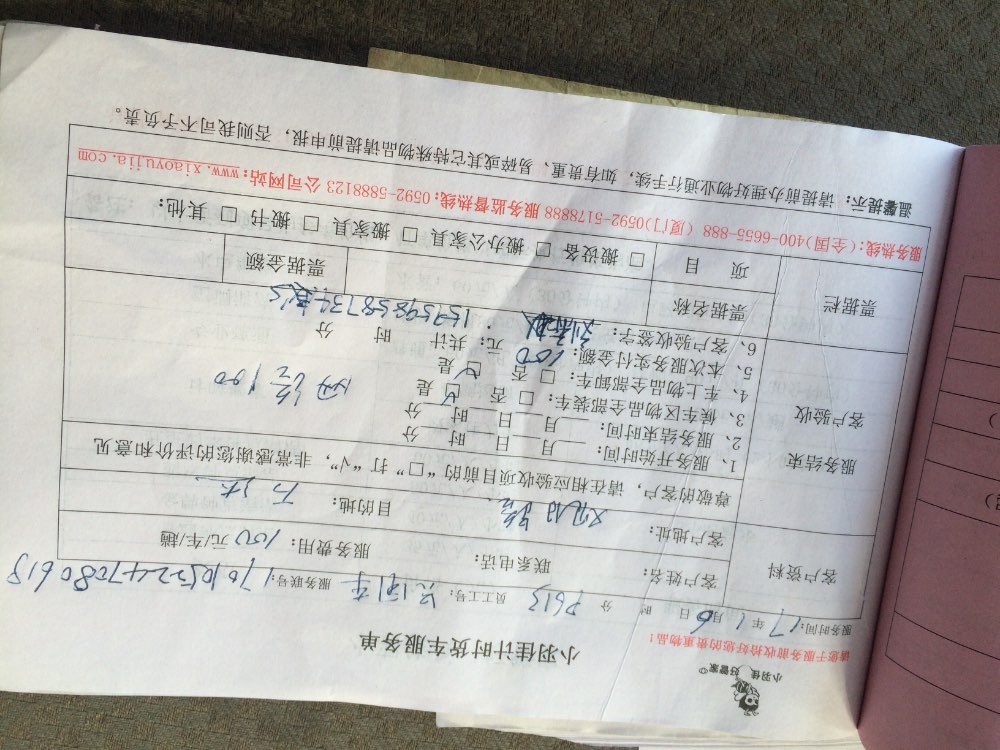 小羽佳 好管家
小羽佳计时货车服务单
请您于服务前收拾好您的贵重物品!
服务时间: 17 年 1 月 6 日 时 分 P613 员工工号: 服务联号: 1701052247080618
客户资料
客户姓名: 联系电话: 服务费用: 100 元/车/趟
客户地址: 目的地:
服务结束
客户验收
尊敬的客户,请在相应验收项目前的“□”打“√”,非常感谢您的评价和意见
1、服务开始时间: 月 日 时 分
2、服务结束时间: 月 日 时 分
3、候车区物品全部装车: □ 否 ☑ 是
4、车上物品全部卸车: □ 否 ☑ 是 100
5、本次服务实付金额: 100 元; 共计 时 分
6、客户验收签字: 15759858734
票据栏
票据名称 票据金额
项 目 □ 搬设备 □ 搬办公家具 □ 搬家具 □ 搬书 □ 其他:
服务热线:(全国)400-6655-888 (厦门)0592-5178888 服务监督热线:0592-5888123 公司网站:www.xiaoyujia.com
温馨提示: 请提前办理好物业通行手续,如有贵重、易碎或其它特殊物品请提前申报,否则我司不予负责。